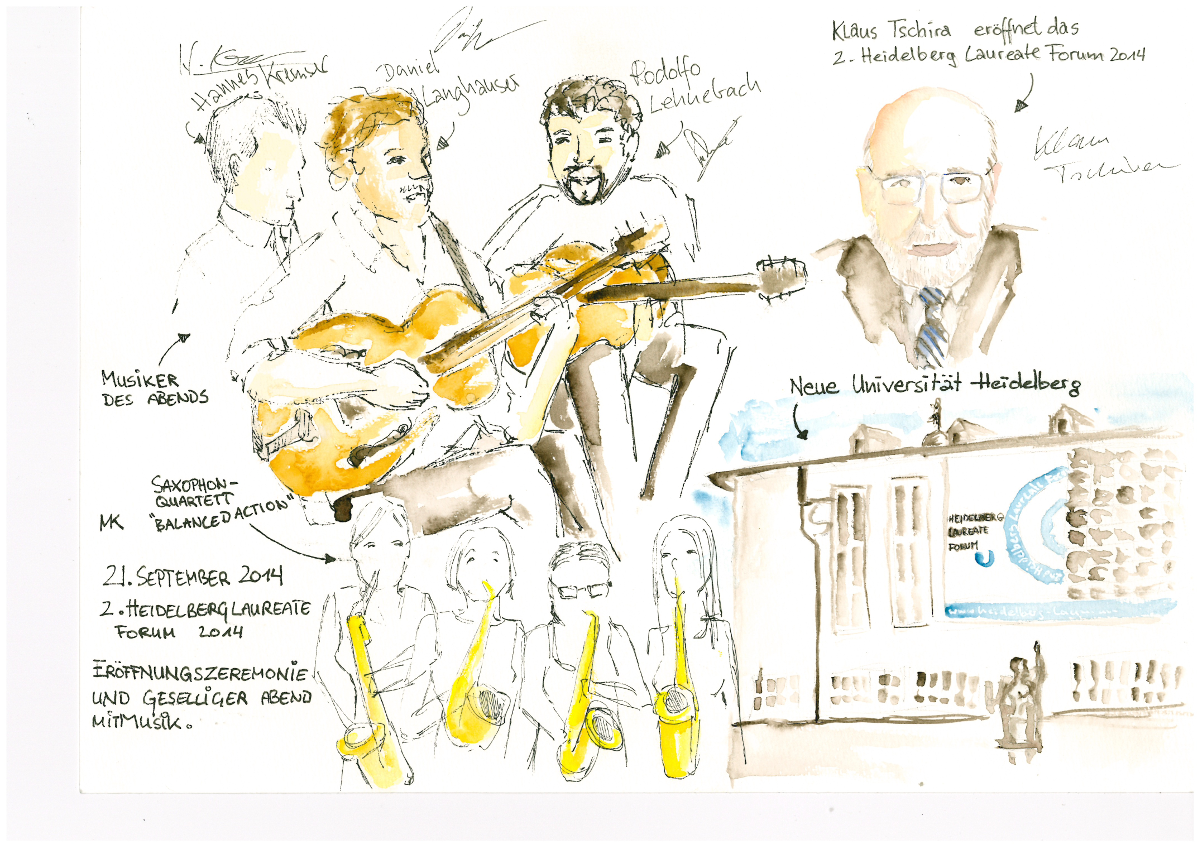 Klaus Tschira eröffnet das
2. Heidelberg Laureate Forum 2014
Klaus
Tschira
Hannes Kremser
Daniel
Langhauser
Rodolfo
Lehnebach
Musiker
des Abends
Neue Universität Heidelberg
Heidelberg
Laureate
Forum
Saxophon-
quartett
"Balanced Action"
MK
21. September 2014
2. Heidelberg Laureate
Forum 2014
Eröffnungszeremonie
und geselliger Abend
mit Musik.